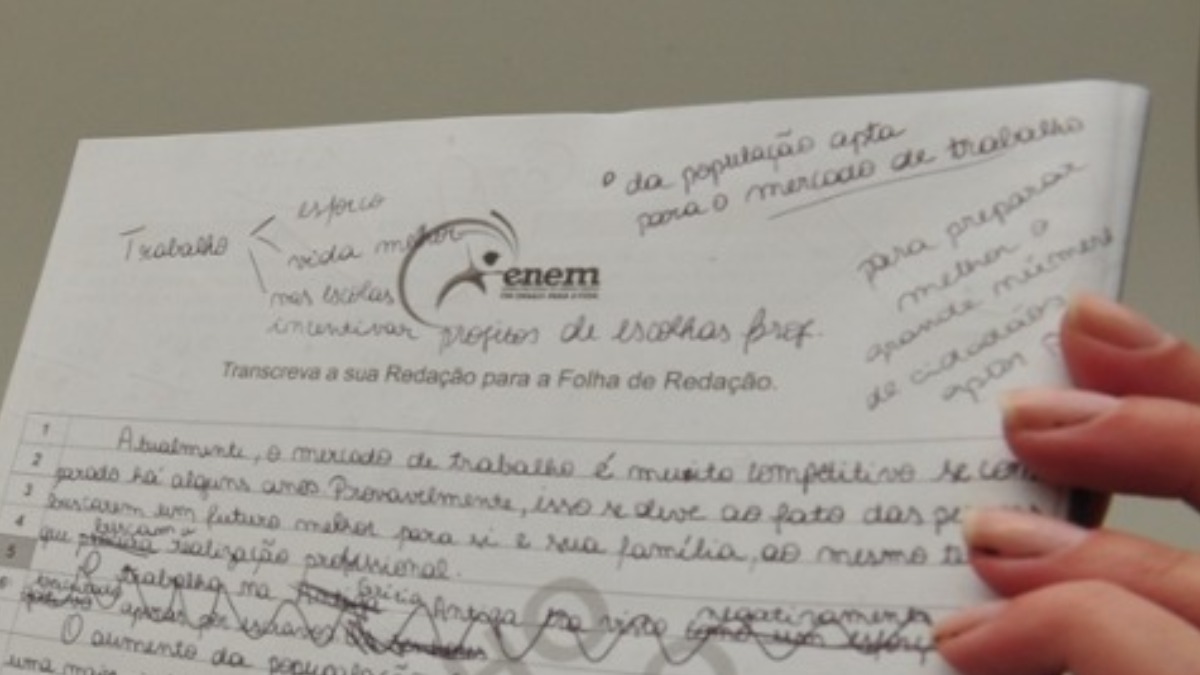 ° da população apta
para o mercado de trabalho
Trabalho
esforço
vida melhor
nas escolas
incentivar projetos de escolhas prof.
enem
para preparar
melhor o
grande número
de cidadãos
Transcreva a sua Redação para a Folha de Redação.
1 Atualmente, o mercado de trabalho é muito competitivo se com
2 parado há alguns anos. Provavelmente, isso se deve ao fato das
3 buscarem um futuro melhor para si e sua família, ao mesmo
4 que buscam realização profissional.
5 O trabalho na Grécia Antiga era visto negativamente
6 apenas por escravos
O aumento da população
uma mais